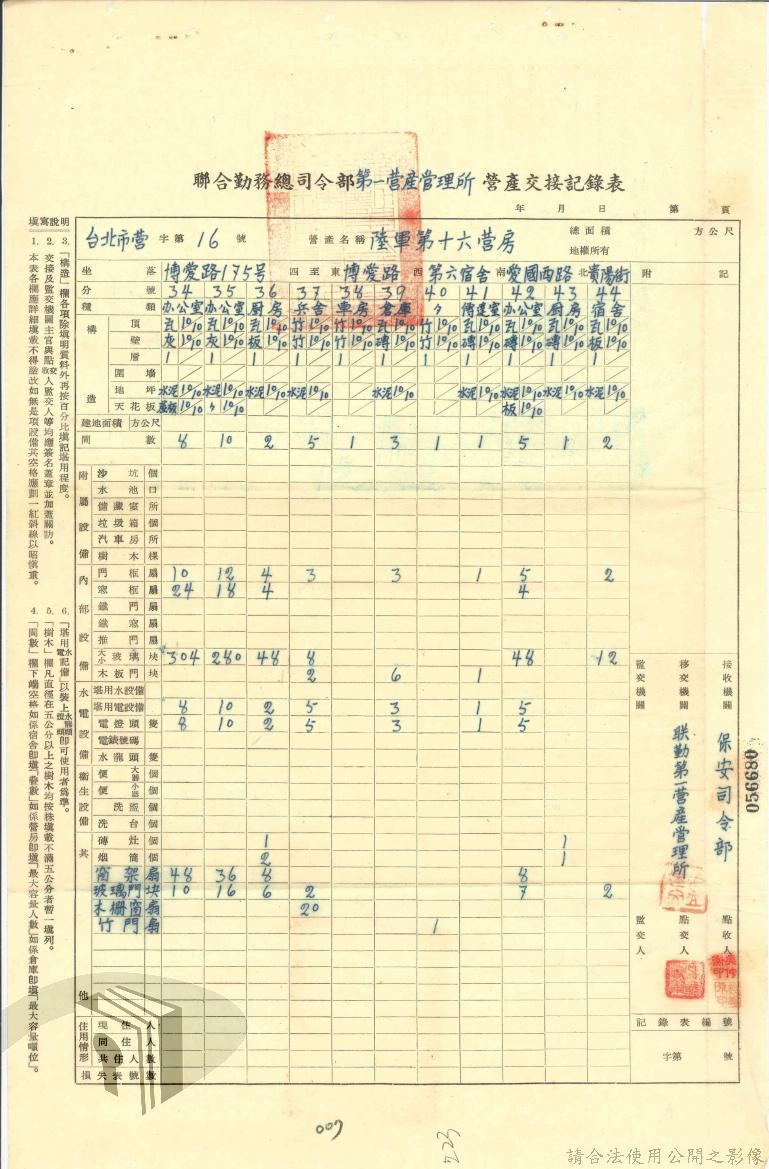 聯合勤務總司令部第一营產管理所 營產交接記錄表
年 月 日 第 頁
台北市营 字第 16 號 營產名稱 陸軍第十六营房 總面積 方公尺 地權所有
坐落 博愛路175号 四至 東 博愛路 西 第六宿舍 南 愛國西路 北 貴陽街 附記
分號 34 35 36 37 38 39 40 41 42 43 44
種類 办公室 办公室 厨房 兵舍 車房 倉庫 〃 傳達室 办公室 厨房 宿舍
構造
頂 瓦10/10 瓦10/10 瓦10/10 竹10/10 竹10/10 瓦10/10 竹10/10 瓦10/10 瓦10/10 瓦10/10 瓦10/10
壁 灰10/10 灰10/10 板10/10 竹10/10 竹10/10 磚10/10 竹10/10 磚10/10 磚10/10 磚10/10 板10/10
層 1 1 1 1 1 1 1 1 1 1 1
圍墻
地坪 水泥10/10 水泥10/10 水泥10/10 水泥10/10 水泥10/10 水泥10/10 水泥10/10 水泥10/10 水泥10/10
天花板 蔗板10/10 〃10/10 板10/10
建地面積 方公尺
間數 8 10 2 5 1 3 1 1 5 1 2
附屬設備
沙坑 個
水池 口
儲藏室 所
垃圾箱 個
汽車房 所
樹木 棵
內部設備
門框 扇 10 12 4 3 3 1 5 2
窓框 扇 24 18 4 4
鐵門 扇
鐵窓 扇
推門 扇
大小玻璃 块 304 280 48 8 48 12
木板門 块 2 6 1
水電設備
堪用水設備
堪用電設備 8 10 2 5 3 1 5
電燈頭 隻 8 10 2 5 3 1 5
電錶號碼
水龍頭 隻
衛生設備
大便器 個
小便器 個
洗盥 個
洗台 個
其他
磚灶 個 1 1
烟筒 個 2 1
窗架 扇 48 36 8 8
玻璃門 块 10 16 6 2 7 2
木栅窗 扇 20
竹門 扇 1
住用情形
現住人
同住人
共住人數
損失表號數
接收機關 保安司令部
移交機關 联勤第一营產管理所
監交機關
點收人
點交人
監交人
記錄表編號
字第 號
056680
填寫說明
1. 本表各欄應詳細填載不得塗改如無是項設備其空格應劃一紅斜線以昭慎重。
2. 交接及監交機關主官與點收交人監交人等均應簽名蓋章並加蓋關防。
3. 「構造」欄各項除填明質料外再按百分比填記堪用程度。
4. 「間數」欄下端空格如係宿舍即填「叠數」如係營房即填「最大容量人數」如係倉庫即填「最大容量噸位」。
5. 「樹木」欄凡直徑在五公分以上之樹木均按株填載不滿五公分者暫一填列。
6. 「堪用水電設備」以裝上水龍頭燈頭即可使用者爲準。
007
223
請合法使用公開之影像